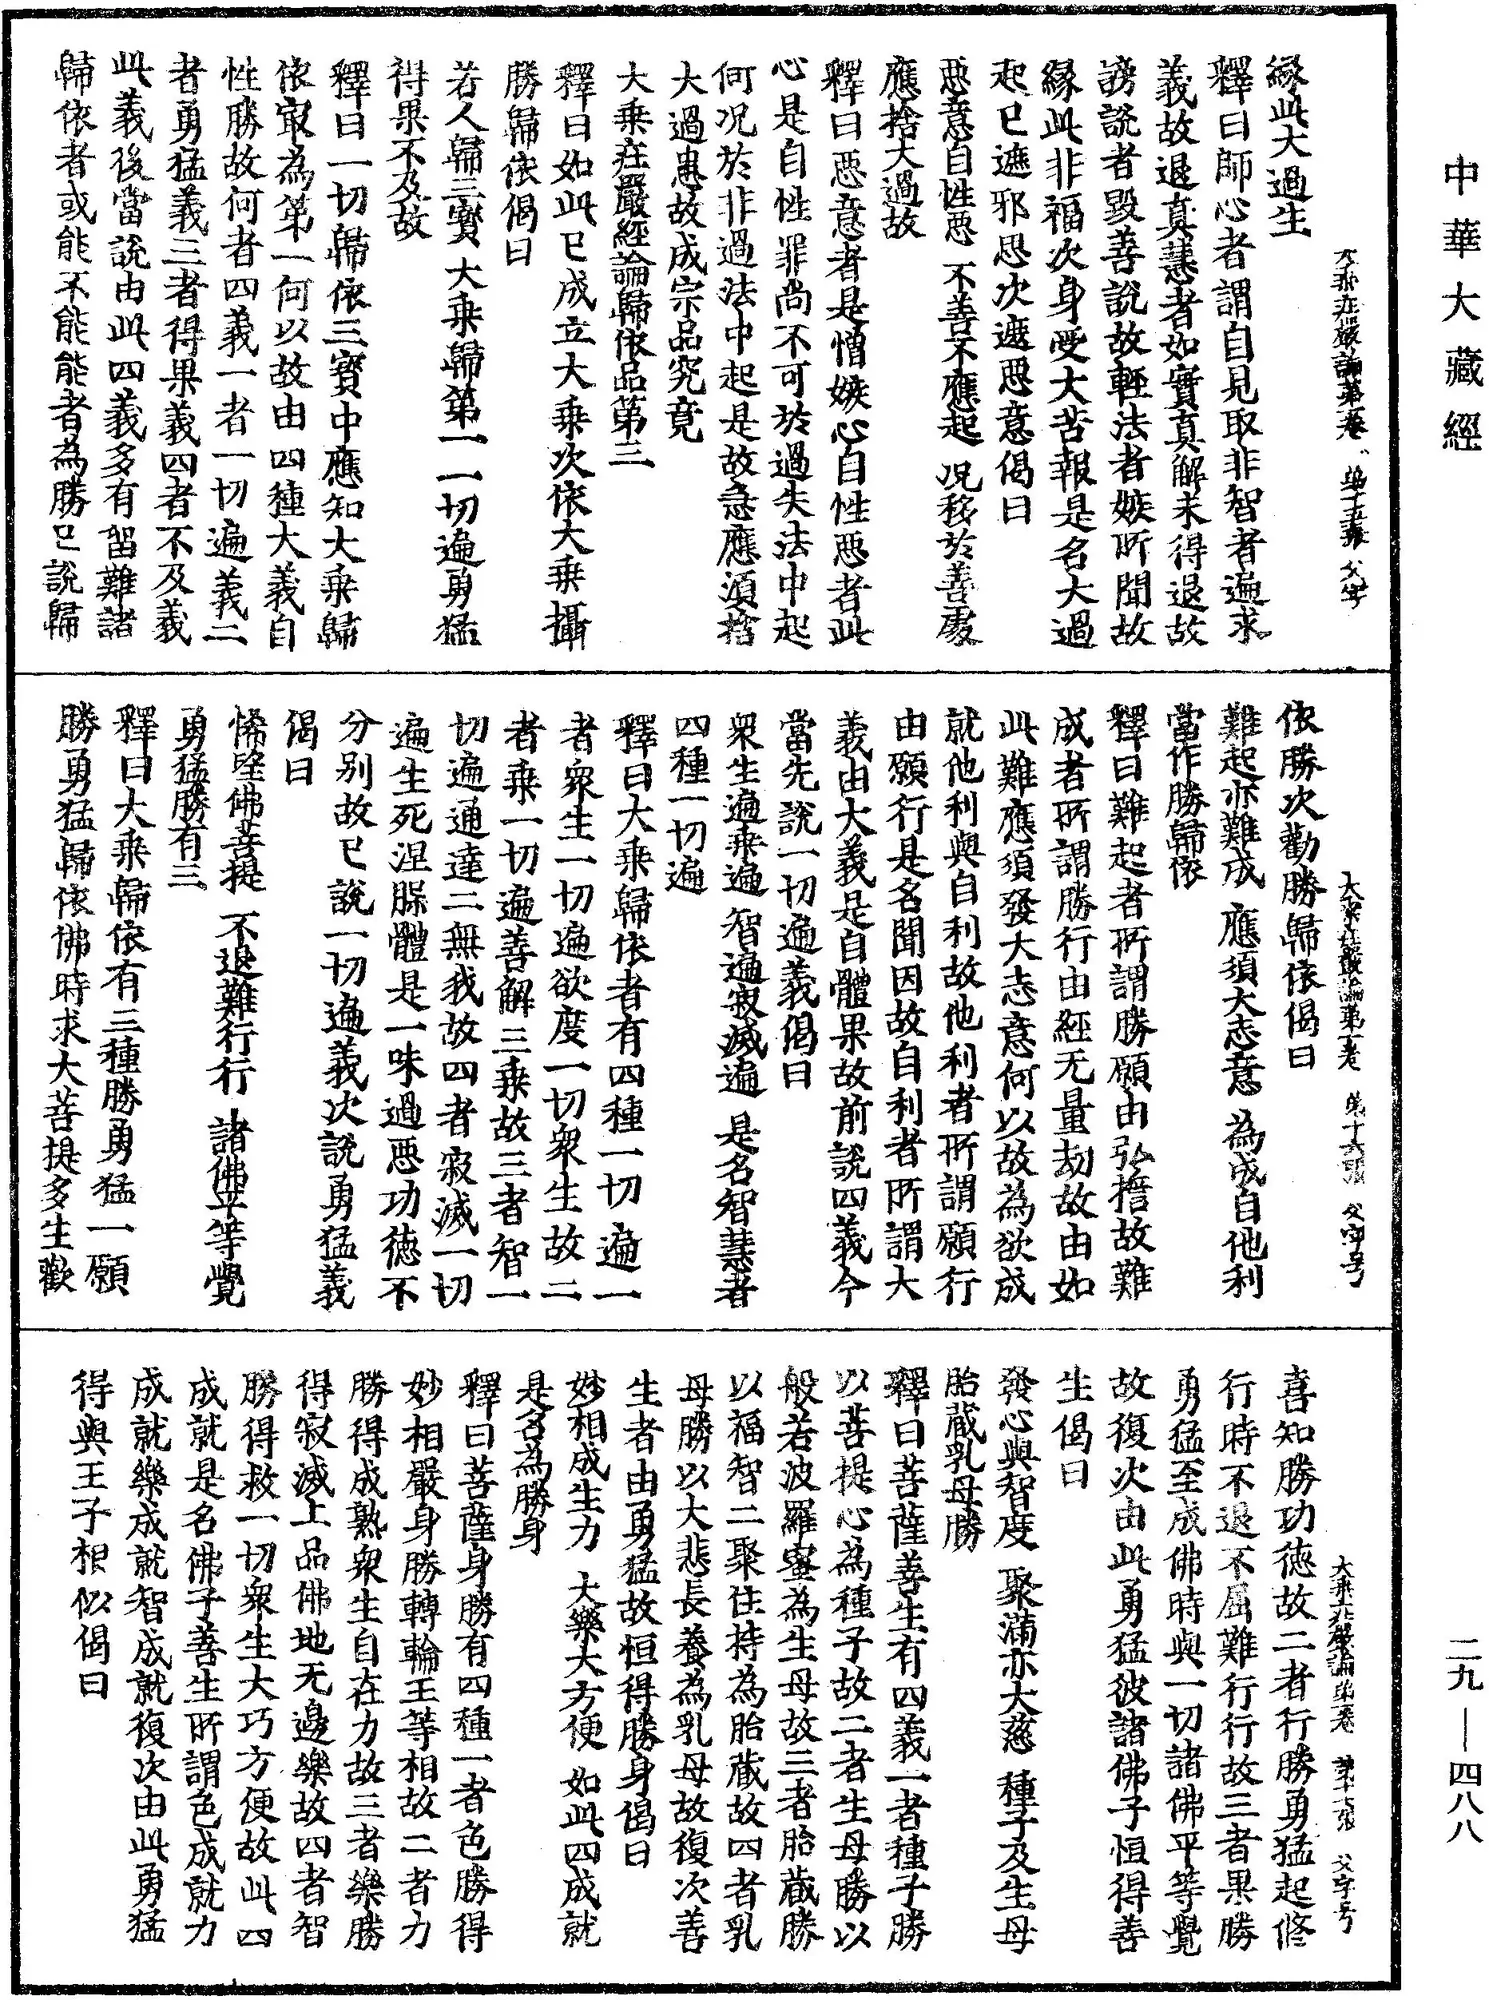 中華大藏經
二九—四八八
大乘莊嚴論第一卷 第十五張 父字号
緣此大過生
釋曰師心者謂自見取非智者遍求
義故退真慧者如實真解未得退故
謗說者毀善說故輕法者嫉所聞故
緣此非福次身受大苦報是名大過
起已遮邪思次遮惡意偈曰
惡意自性惡 不善不應起 况移於善處
應捨大過故
釋曰惡意者是憎嫉心自性惡者此
心是自性罪尚不可於過失法中起
何况於非過法中起是故急應須捨
大過患故成宗品究竟
大乘莊嚴經論歸依品第三
釋曰如此已成立大乘次依大乘攝
勝歸依偈曰
若人歸三寶 大乘歸第一 一切遍勇猛
得果不及故
釋曰一切歸依三寶中應知大乘歸
依㝡為第一何以故由四種大義自
性勝故何者四義一者一切遍義二
者勇猛義三者得果義四者不及義
此義後當說由此四義多有留難諸
歸依者或能不能能者為勝已說歸
大乘莊嚴論第一卷 第十六張 父字号
依勝次勸勝歸依偈曰
難起亦難成 應須大志意 為成自他利
當作勝歸依
釋曰難起者所謂勝願由弘擔故難
成者所謂勝行由經无量劫故由如
此難應須發大志意何以故為欲成
就他利與自利故他利者所謂願行
由願行是名聞因故自利者所謂大
義由大義是自體果故前說四義今
當先說一切遍義偈曰
衆生遍乘遍 智遍寂滅遍 是名智慧者
四種一切遍
釋曰大乘歸依者有四種一切遍一
者衆生一切遍欲度一切衆生故二
者乘一切遍善解三乘故三者智一
切遍通達二無我故四者寂滅一切
遍生死涅槃體是一味過惡功德不
分別故已說一切遍義次說勇猛義
偈曰
悕望佛菩提 不退難行行 諸佛平等覺
勇猛勝有三
釋曰大乘歸依有三種勝勇猛一願
勝勇猛歸依佛時求大菩提多生歡
大乘莊嚴論第一卷 第十七張 父字号
喜知勝功德故二者行勝勇猛起修
行時不退不屈難行行故三者果勝
勇猛至成佛時與一切諸佛平等覺
故復次由此勇猛彼諸佛子恒得善
生偈曰
發心與智度 聚滿亦大慈 種子及生母
胎藏乳母勝
釋曰菩薩善生有四義一者種子勝
以菩提心為種子故二者生母勝以
般若波羅蜜為生母故三者胎藏勝
以福智二聚住持為胎藏故四者乳
母勝以大悲長養為乳母故復次善
生者由勇猛故恒得勝身偈曰
妙相成生力 大樂大方便 如此四成就
是名為勝身
釋曰菩薩身勝有四種一者色勝得
妙相嚴身勝轉輪王等相故二者力
勝得成熟衆生自在力故三者樂勝
得寂滅上品佛地无邊樂故四者智
勝得救一切衆生大巧方便故此四
成就是名佛子善生所謂色成就力
成就樂成就智成就復次由此勇猛
得與王子相似偈曰